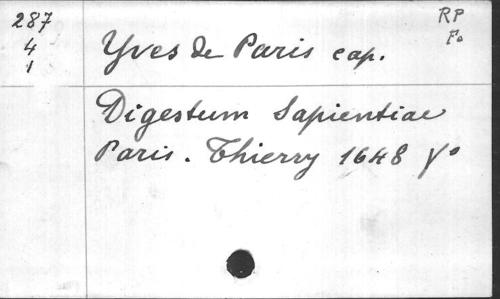 287
4
1
Yves de Paris cap.
RP
Fo
Digestum Sapientiae
Paris. Thierry 1648 fo